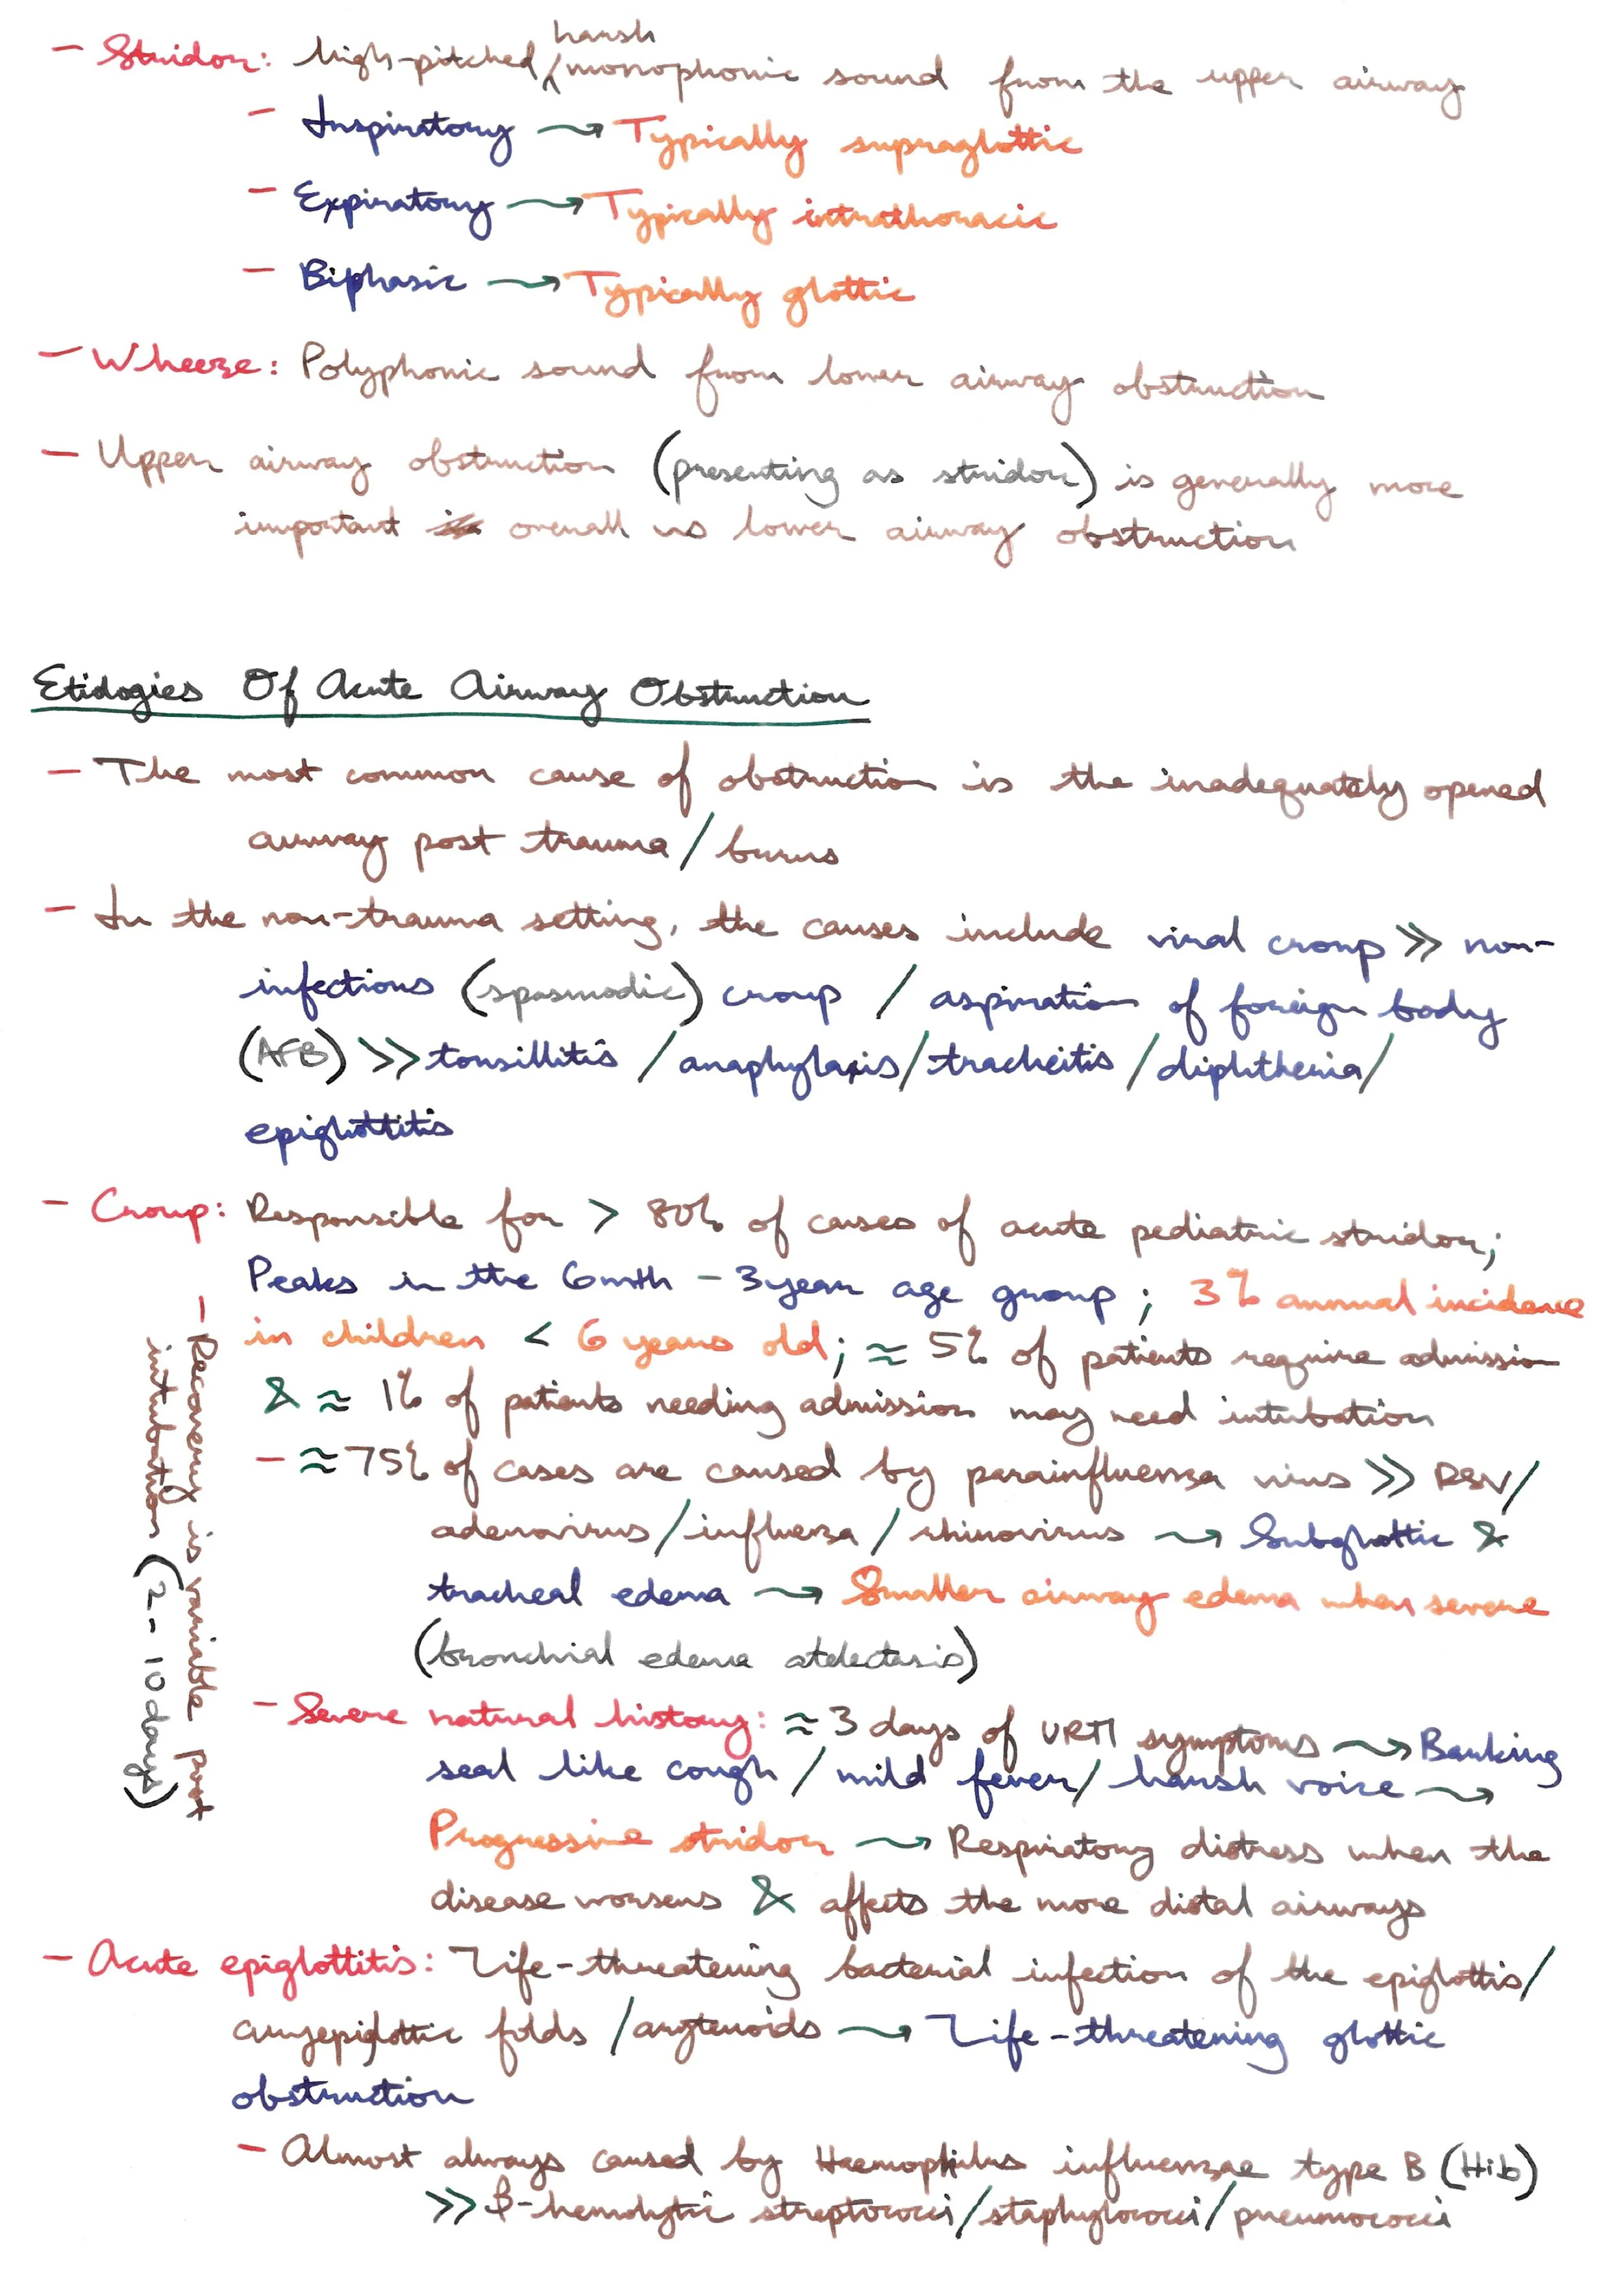 - Stridor: high-pitched, harsh monophonic sound from the upper airway
- Inspiratory → Typically supraglottic
- Expiratory → Typically intrathoracic
- Biphasic → Typically glottic
- Wheeze: Polyphonic sound from lower airway obstruction
- Upper airway obstruction (presenting as stridor) is generally more
important overall vs lower airway obstruction
Etiologies Of Acute Airway Obstruction
- The most common cause of obstruction is the inadequately opened
airway post trauma/burns
- In the non-trauma setting, the causes include viral croup >> non-
infectious (spasmodic) croup / aspiration of foreign body
(AFB) >> tonsillitis / anaphylaxis / tracheitis / diphtheria /
epiglottitis
- Croup: Responsible for > 80% of cases of acute pediatric stridor;
Peaks in the 6mth - 3 year age group; 3% annual incidence
in children < 6 years old; ≈ 5% of patients require admission
& ≈ 1% of patients needing admission may need intubation
- ≈ 75% of cases are caused by parainfluenza virus >> RSV/
adenovirus / influenza / rhinovirus → Subglottic &
tracheal edema → Smaller airway edema when severe
(bronchial edema atelectasis)
- Severe natural history: ≈ 3 days of URTI symptoms → Barking
seal like cough / mild fever / harsh voice →
Progressive stridor → Respiratory distress when the
disease worsens & affects the more distal airways
- Recovery is variable post
intubation (2 - 10 days)
- Acute epiglottitis: Life-threatening bacterial infection of the epiglottis/
aryepiglottic folds / arytenoids → Life-threatening glottic
obstruction
- Almost always caused by Haemophilus influenzae type B (Hib)
>> β-hemolytic streptococci / staphylococci / pneumococci